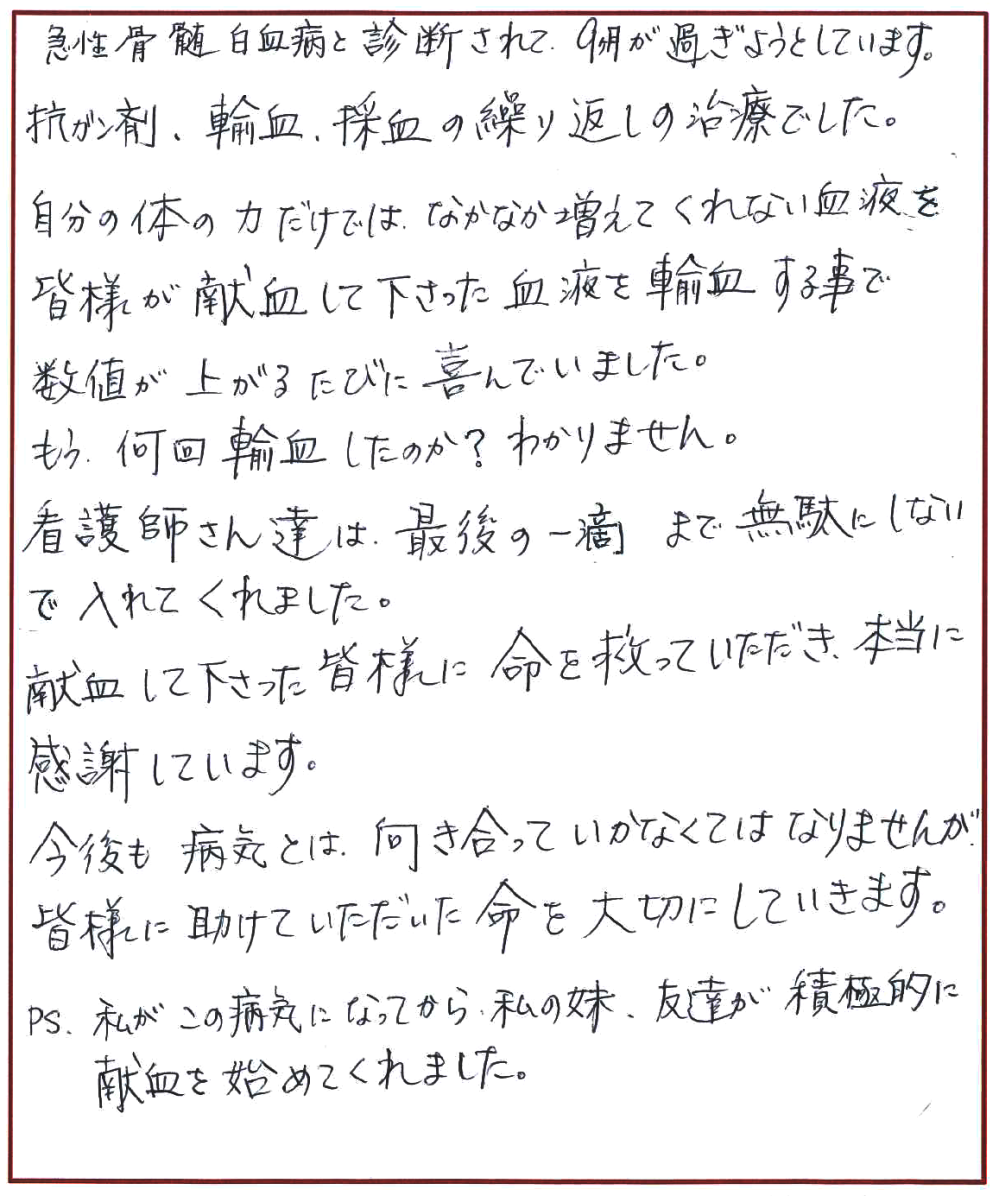 急性骨髄白血病と診断されて、9ヶ月が過ぎようとしています。
抗ガン剤、輸血、採血の繰り返しの治療でした。
自分の体の力だけでは、なかなか増えてくれない血液を
皆様が献血して下さった血液を輸血する事で
数値が上がるたびに喜んでいました。
もう、何回輸血したのか？わかりません。
看護師さん達は、最後の一滴まで無駄にしない
で入れてくれました。
献血して下さった皆様に命を救っていただき、本当に
感謝しています。
今後も病気とは、向き合っていかなくてはなりませんが、
皆様に助けていただいた命を大切にしていきます。
PS、私がこの病気になってから、私の妹、友達が積極的に
献血を始めてくれました。